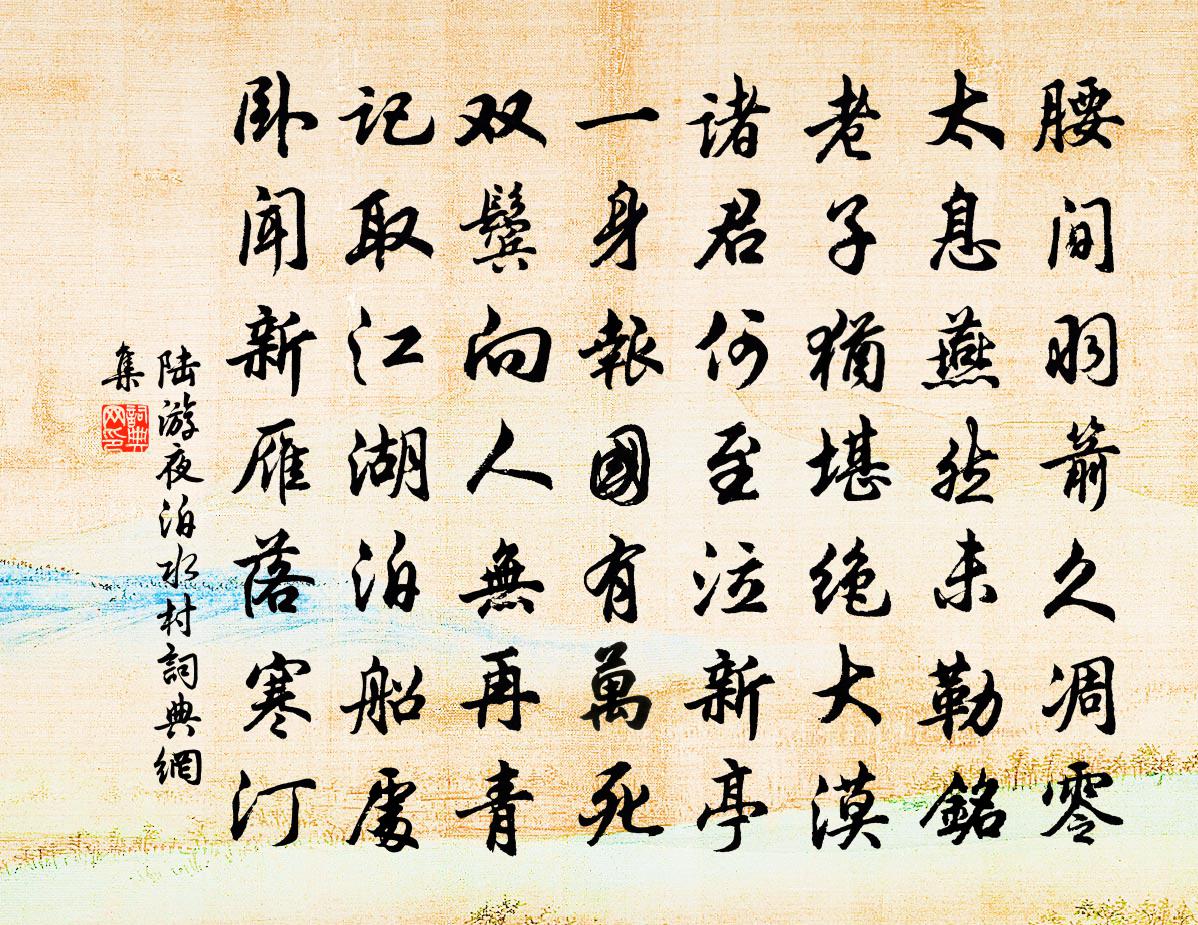 腰间羽箭久凋零
太息燕然未勒銘
老子猶堪绝大漠
诸君何至泣新亭
一身報國有萬死
双鬓向人無再青
记取江湖泊船處
卧闻新雁落寒汀
陆游夜泊水村詞典網
集
詞典网印